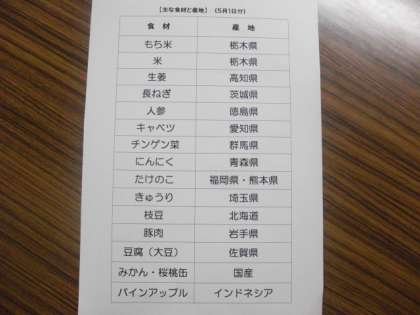 【主な食材と産地】 (5月1日分)
食 材 産 地
もち米 栃木県
米 栃木県
生姜 高知県
長ねぎ 茨城県
人参 徳島県
キャベツ 愛知県
チンゲン菜 群馬県
にんにく 青森県
たけのこ 福岡県・熊本県
きゅうり 埼玉県
枝豆 北海道
豚肉 岩手県
豆腐（大豆） 佐賀県
みかん・桜桃缶 国産
パインアップル インドネシア